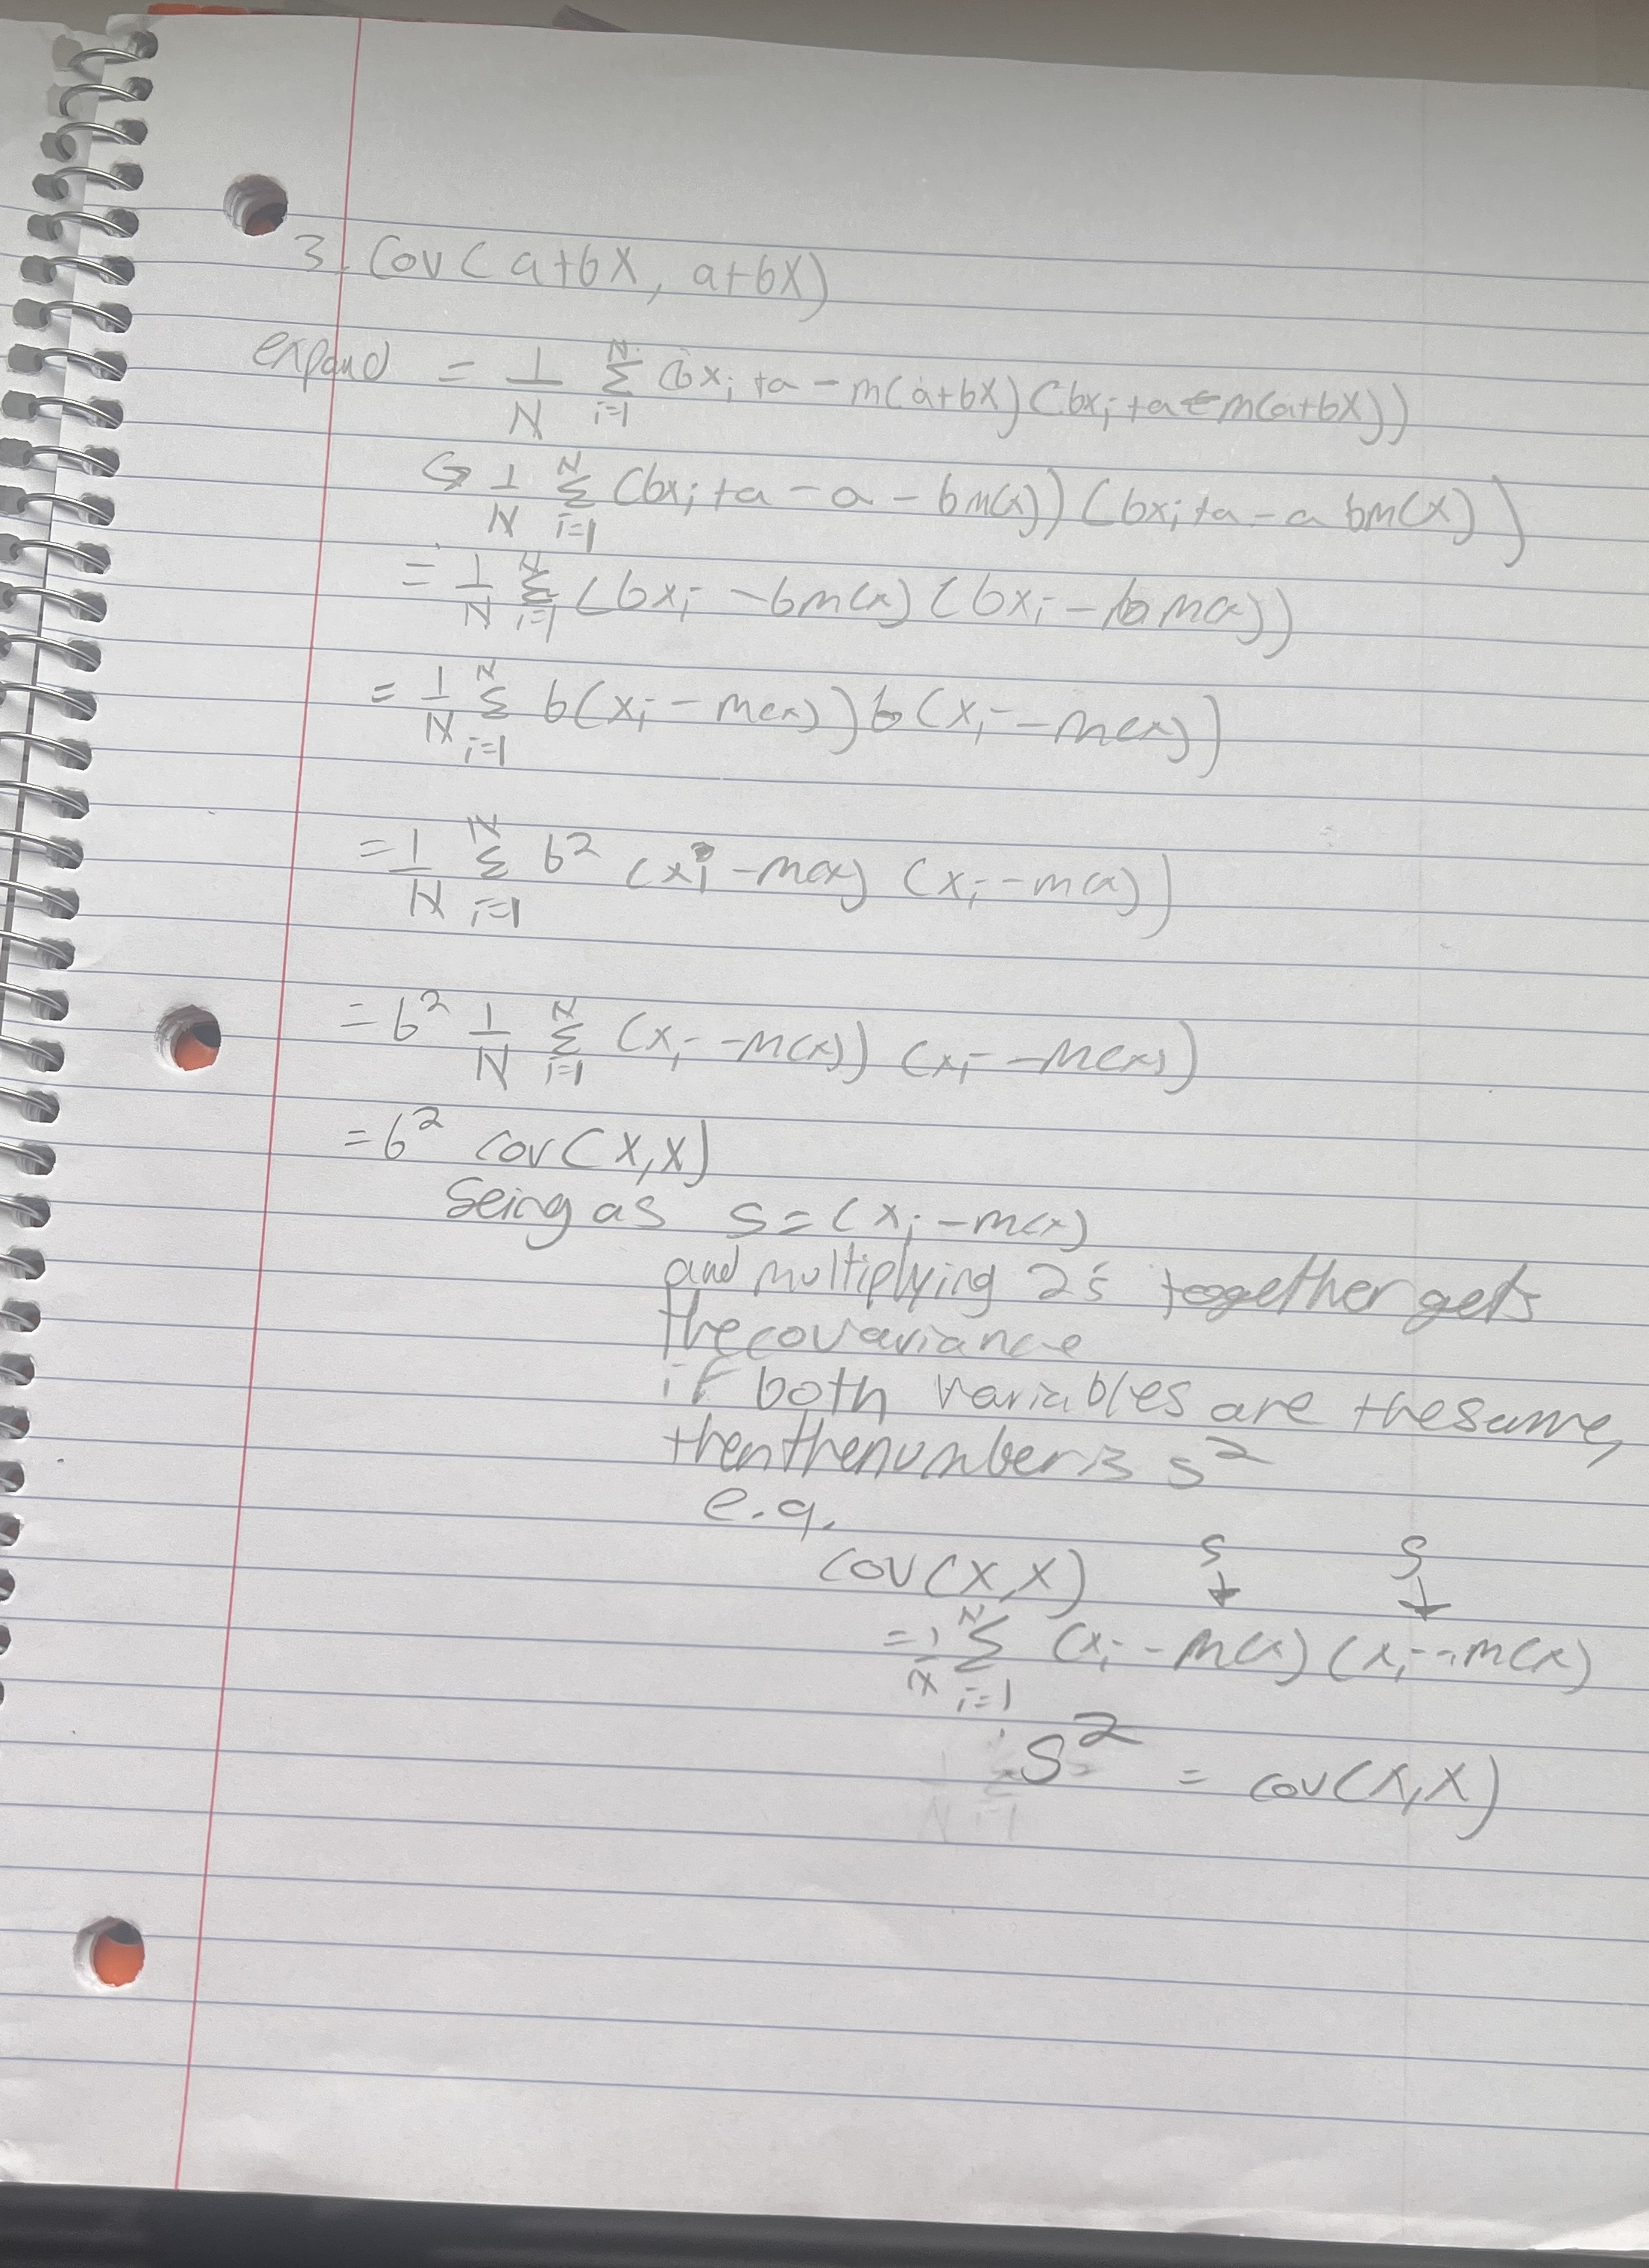 3. Cov(a+bX, a+bX)
expand = 1/N N Σ i=1 (bxi +a - m(a+bX)(bxi +a - m(a+bX))
↪ 1/N N Σ i=1 (bxi +a - a - bm(x))(bxi +a - a bm(X))
= 1/N N Σ i=1 (bxi - bm(x)(bxi - bm(x))
= 1/N N Σ i=1 b(xi - m(x))b(xi - m(x))
= 1/N N Σ i=1 b² (xi - m(x) (xi - m(x))
= b² 1/N N Σ i=1 (xi - m(x)) (xi - m(x))
= b² cov(X,X)
Seing as s = (xi - m(x)
and multiplying 2 s together gets
the covariance
if both variables are the same,
then the number is s²
e.g.
cov(X,X) s↓ s↓
= 1/N N Σ i=1 (xi - m(x)(xi - m(x)
s² = cov(X,X)